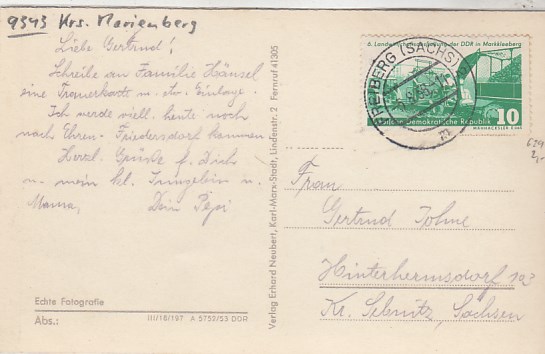 9343 Krs. Marienberg
Liebe Gertrud!
Schreibe an Familie Hänsel
eine Trauerkarte m. etw. Einlage.
Ich werde viell. heute noch
nach Ehren-Friedersdorf kommen
Herzl. Grüße f. Dich
u. mein kl. Jungelein u.
Mama, Dein Pepi
Echte Fotografie
Abs.:
III/18/197 A 5752/53 DDR
Verlag Erhard Neubert, Karl-Marx-Stadt, Lindenstr. 2 Fernruf 41305
6. Landwirtschaftsausstellung der DDR in Markkleeberg
Deutsche Demokratische Republik
10
FREIBERG (SACHS)
m
Frau
Gertrud
Hinterhermsdorf
Kr. Sebnitz, Sachsen